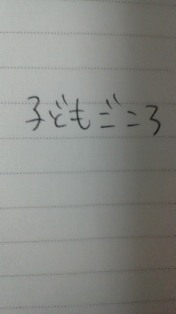 子どもごころ